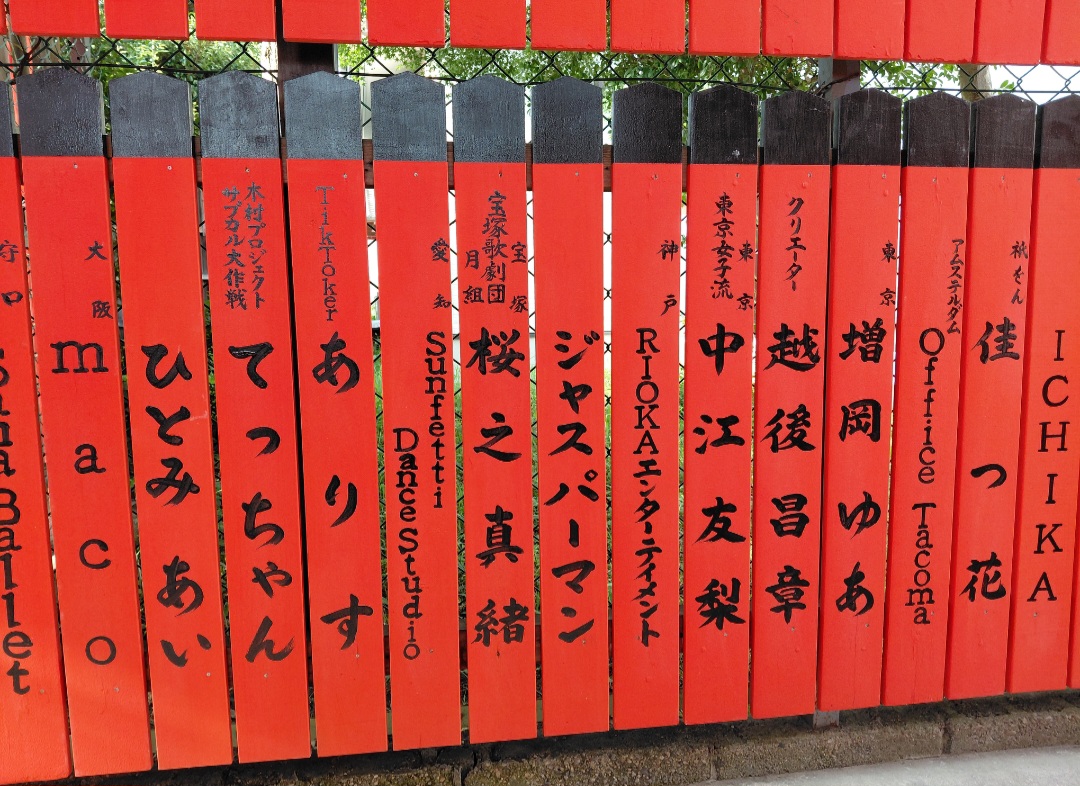 ICHIKA
祇をん
佳つ花
アムステルダム
Office Tacoma
東京
増岡ゆあ
クリエーター
越後昌章
東京
東京女子流
中江友梨
神戸
RIOKAエンターティメント
ジャスパーマン
宝塚
宝塚歌劇団
月組
桜之真緒
愛知
Sunfetti
Dance Studio
TikToker
ありす
木村プロジェクト
サブカル大作戦
てっちゃん
ひとみあい
大阪
maco
守口
Ballet